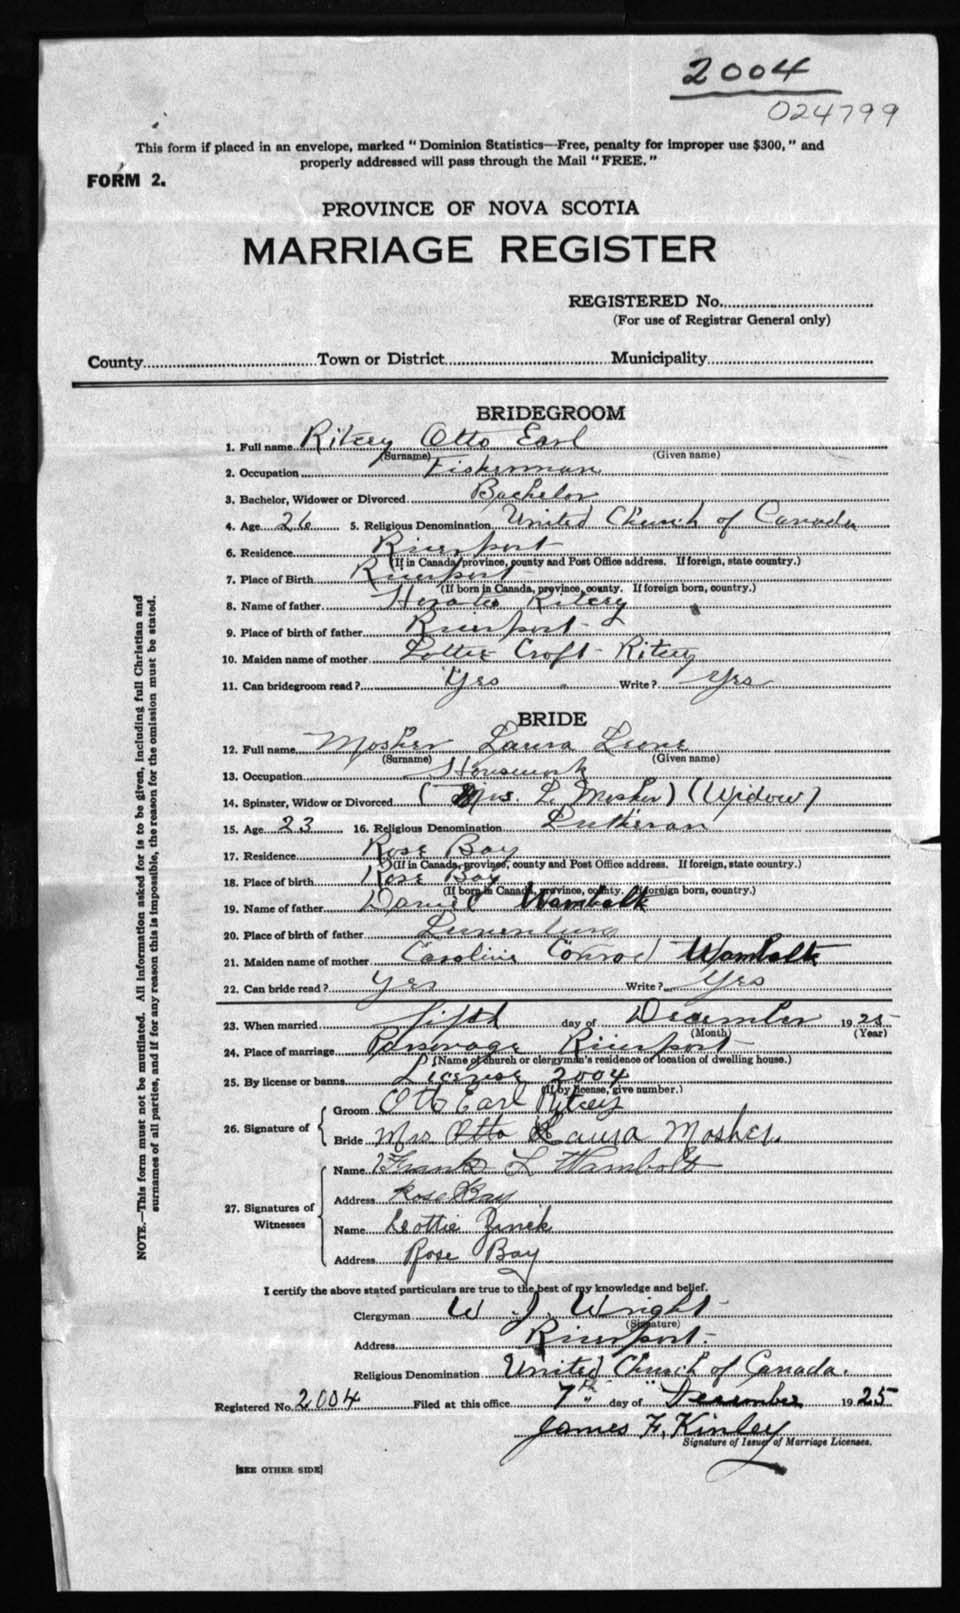 2004
024799
This form if placed in an envelope, marked "Dominion Statistics—Free, penalty for improper use $300," and
properly addressed will pass through the Mail "FREE."
FORM 2.
PROVINCE OF NOVA SCOTIA
MARRIAGE REGISTER
REGISTERED No.
(For use of Registrar General only)
County Town or District Municipality
BRIDEGROOM
1. Full name Ritcey Otto Earl
(Surname) (Given name)
2. Occupation Fisherman
3. Bachelor, Widower or Divorced Bachelor
4. Age 26 5. Religious Denomination United Church of Canada
6. Residence Riverport
(If in Canada province, county and Post Office address. If foreign, state country.)
7. Place of Birth Riverport
(If born in Canada, province, county. If foreign born, country.)
8. Name of father Horatio Ritcey
9. Place of birth of father Riverport
10. Maiden name of mother Lottie Croft - Ritcey
11. Can bridegroom read? Yes Write? Yes
BRIDE
12. Full name Mosher Laura Leone
(Surname) (Given name)
13. Occupation Housework
14. Spinster, Widow or Divorced (Mrs. L. Mosher) (Widow)
15. Age 23 16. Religious Denomination Lutheran
17. Residence Rose Bay
(If in Canada, province, county and Post Office address. If foreign, state country.)
18. Place of birth Rose Bay
(If born in Canada, province, county. If foreign born, country.)
19. Name of father Daniel Wambolt
20. Place of birth of father Lunenburg
21. Maiden name of mother Caroline Conrod Wambolt
22. Can bride read? Yes Write? Yes
23. When married fifth day of December 1925
(Month) (Year)
24. Place of marriage Parsonage Riverport
(Name of church or clergyman's residence or location of dwelling house.)
25. By license or banns License 2004
(If by license, give number.)
26. Signature of
Groom Otto Earl Ritcey
Bride Mrs Otto Laura Mosher.
27. Signatures of Witnesses
Name Frank L Wambolt
Address Rose Bay
Name Lottie Zinck
Address Rose Bay
I certify the above stated particulars are true to the best of my knowledge and belief.
Clergyman W. J. Wright
(Signature)
Address Riverport.
Religious Denomination United Church of Canada.
Registered No. 2004 Filed at this office 7th day of December 1925
James F. Kinley
Signature of Issuer of Marriage Licenses.
[SEE OTHER SIDE]
NOTE.—This form must not be mutilated. All information asked for is to be given, including full Christian and
surnames of all parties, and if for any reason this is impossible, the reason for the omission must be stated.